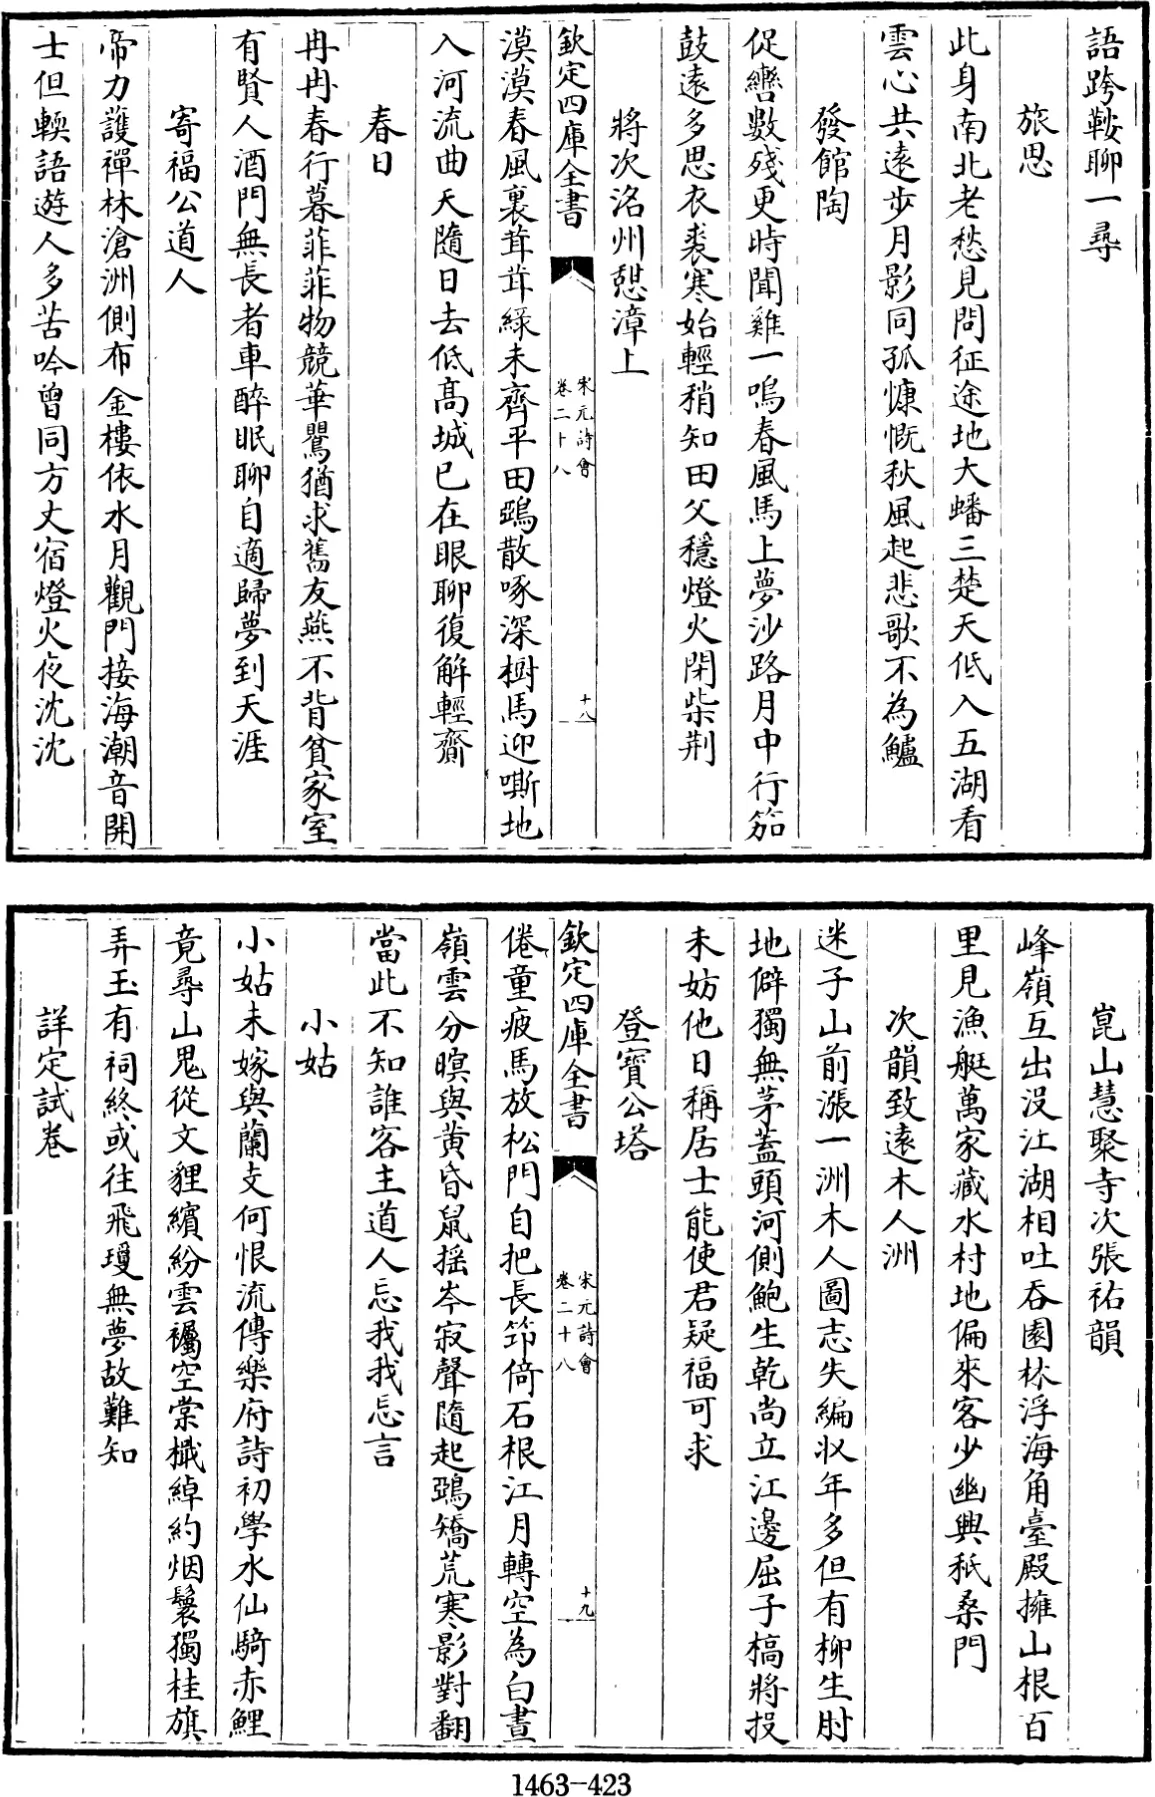 語跨鞍聊一尋
旅思
此身南北老愁見問征途地大蟠三楚天低入五湖看
雲心共遠步月影同孤慷慨秋風起悲歌不為鱸
發館陶
促轡數殘更時聞雞一鳴春風馬上夢沙路月中行笳
鼓遠多思衣裘寒始輕稍知田父穩燈火閉柴荆
將次洺州憇漳上
漠漠春風裏茸茸緑未齊平田鵶散啄深樹馬迎嘶地
入河流曲天隨日去低髙城已在眼聊復解輕齎
春日
冉冉春行暮菲菲物競華鶯猶求舊友燕不背貧家室
有賢人酒門無長者車醉眠聊自適歸夢到天涯
寄福公道人
帝力護禪林滄洲側布金樓依水月觀門接海潮音開
士但輭語遊人多苦吟曾同方丈宿燈火夜沈沈
欽定四庫全書
宋元詩會
卷二十八
十八
崑山慧聚寺次張祐韻
峰嶺互出没江湖相吐吞園林浮海角臺殿擁山根百
里見漁艇萬家藏水村地偏來客少幽興秖桑門
次韻致遠木人洲
迷子山前漲一洲木人圖志失編收年多但有柳生肘
地僻獨無茅蓋頭河側鮑生乾尚立江邊屈子槁將投
未妨他日稱居士能使君疑福可求
登寶公塔
倦童疲馬放松門自把長筇倚石根江月轉空為白晝
嶺雲分暝與黄昏鼠揺岑寂聲隨起鵶矯荒寒影對翻
當此不知誰客主道人忘我我忘言
小姑
小姑未嫁與蘭支何恨流傳樂府詩初學水仙騎赤鯉
竟尋山鬼從文貍繽紛雲襹空棠檝綽約烟鬟獨桂旗
弄玉有祠終或往飛瓊無夢故難知
詳定試卷
欽定四庫全書
宋元詩會
卷二十八
十九
1463-423